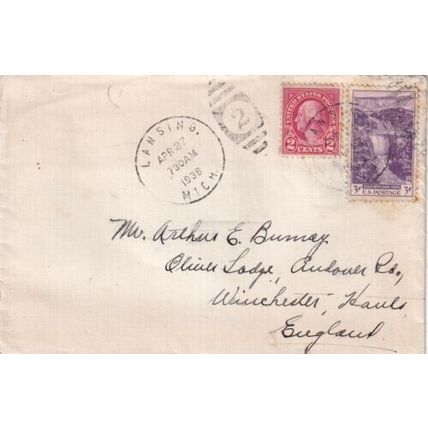 LANSING,
APR 27
7 30 AM
1936
MICH.
2
UNITED STATES POSTAGE
2 CENTS 2
3¢ U.S. POSTAGE 3¢
Mr. Arthur E.
Oliver Lodge, Andover Rd.,
Winchester, Hants
England.